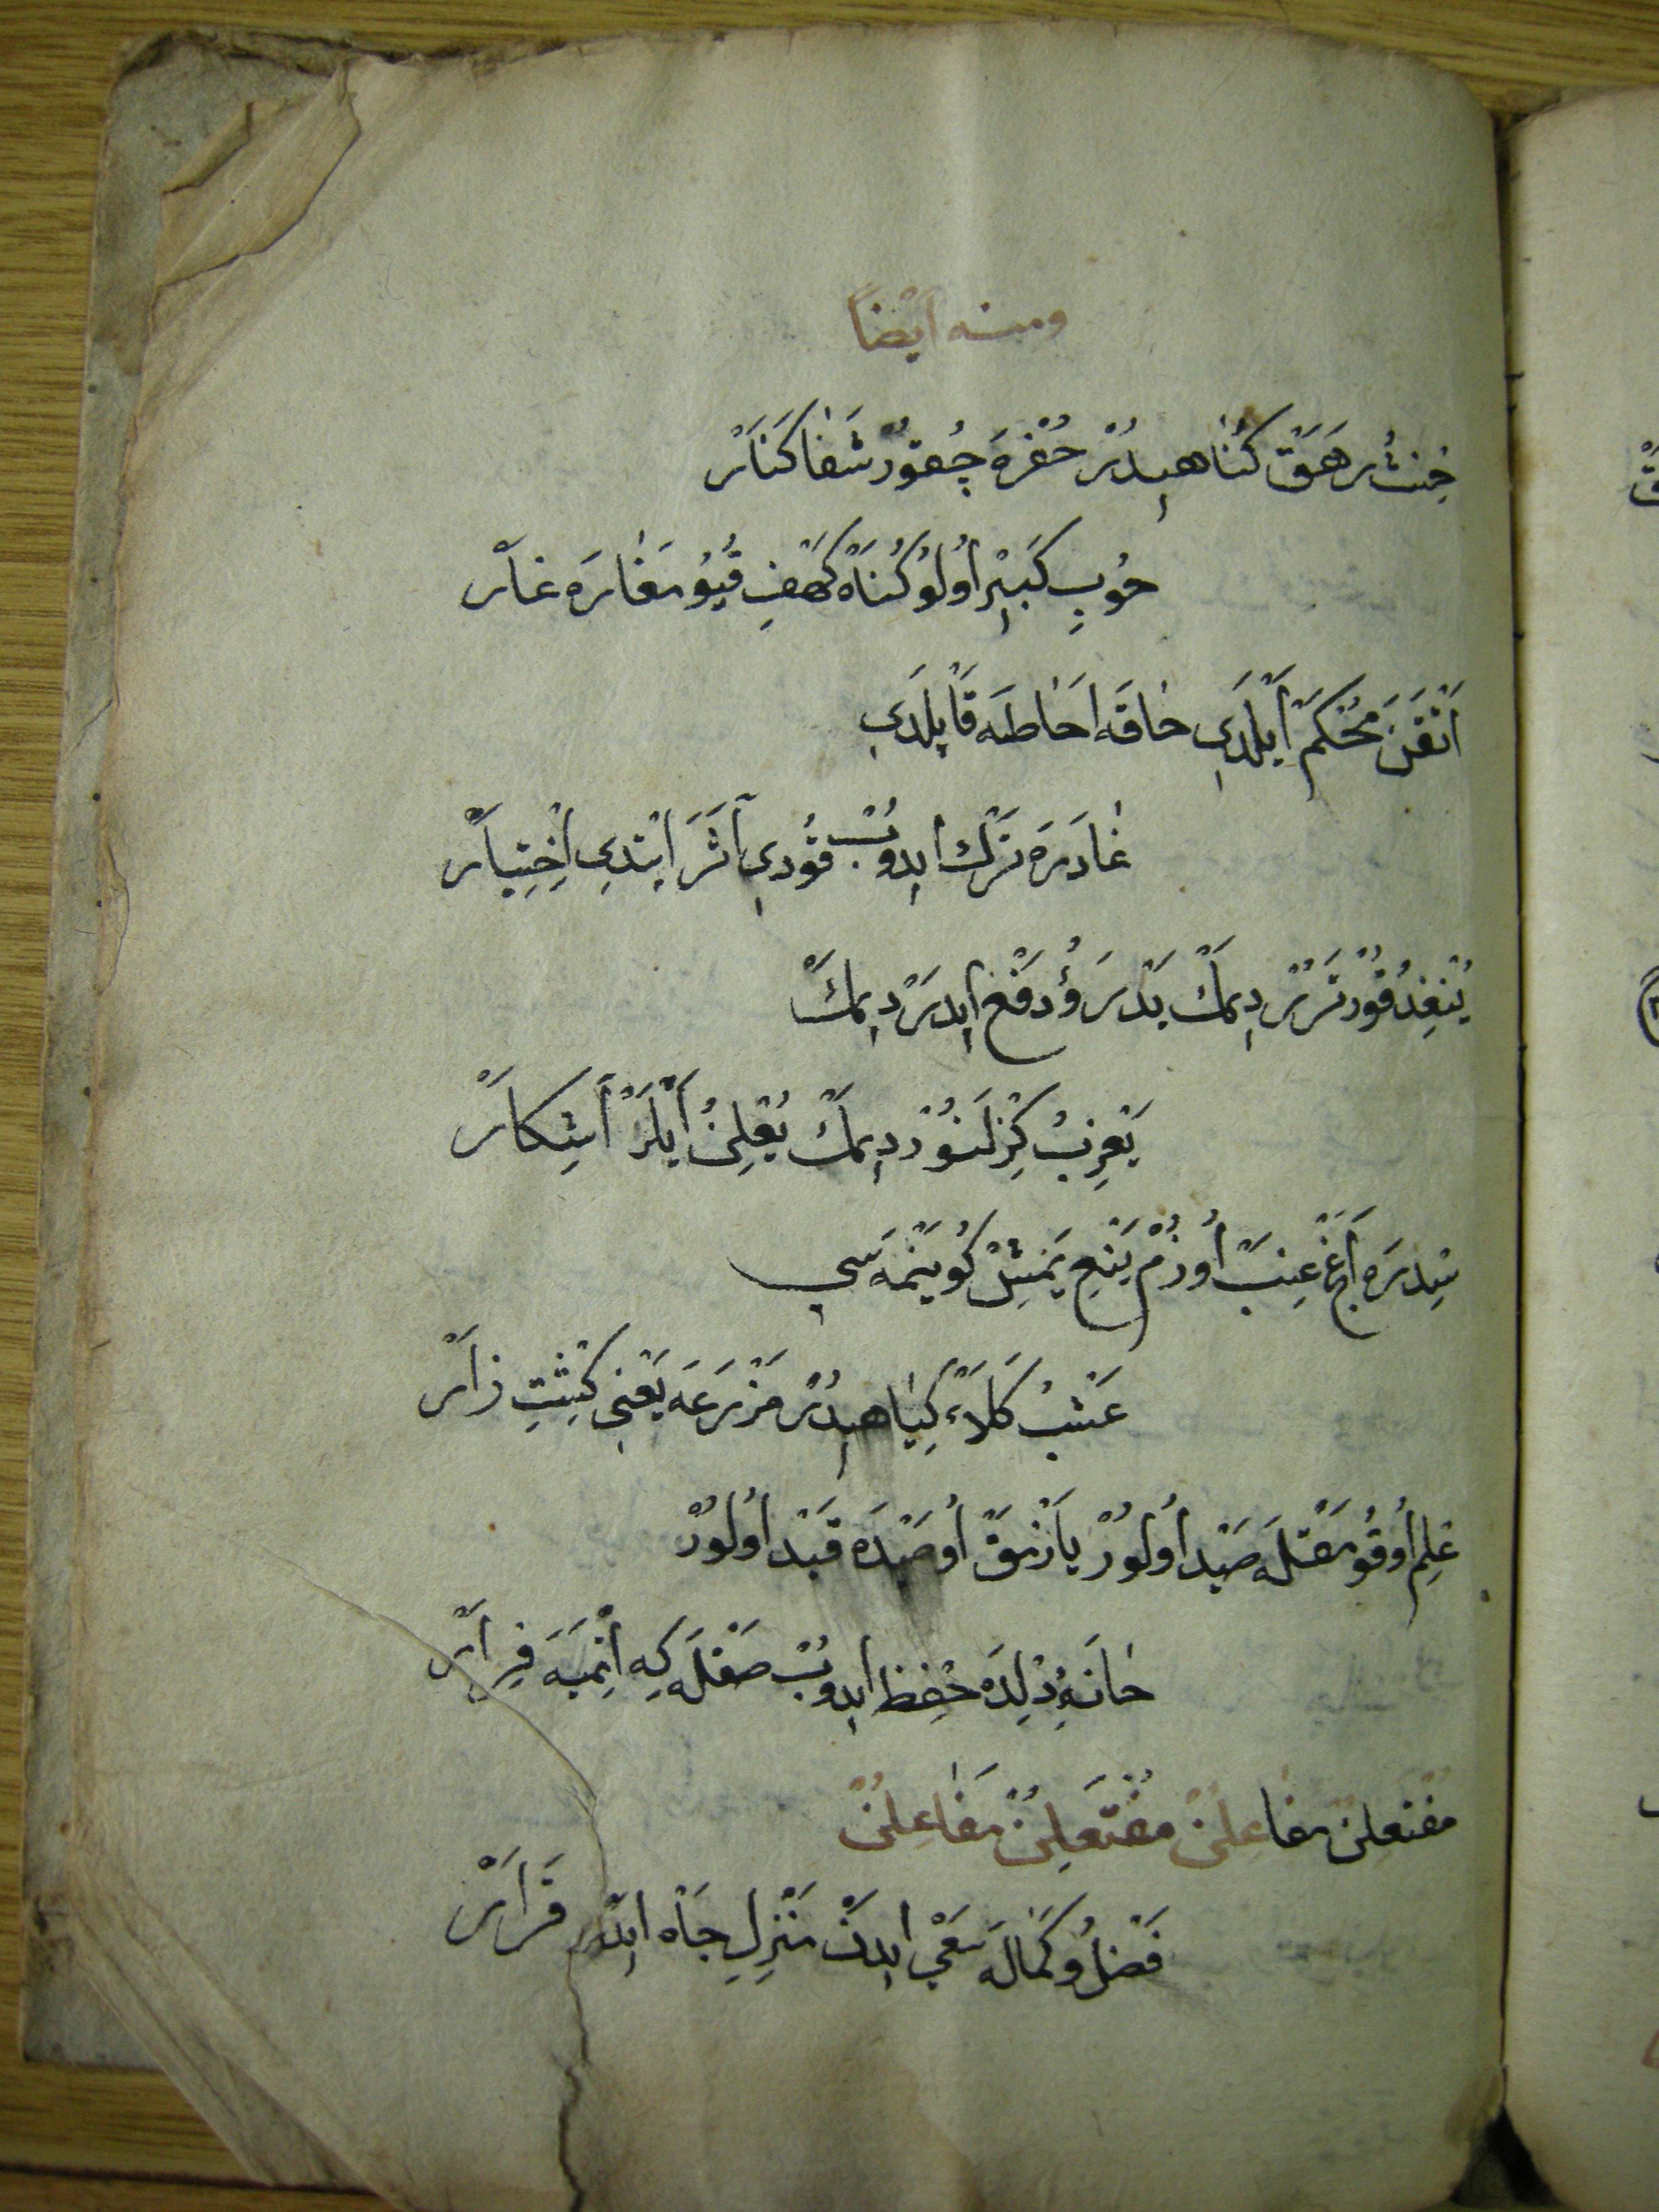 ومنه اَيْضاً
حِنْثُ رَهَقْ كُنَاهِيدُرْ حُفْرَه چُقُورْ شَفَا كَنَارْ
حُوبِ كَبِيْر اُولُو كُنَاهْ كَهْفِ قُيُو مَغَارَه غَارْ
اَتْقَنَ مُحْكَمْ اَيْلَدِي حَاقَه اَحَاطَه قَاپْلَدِي
غَادَرَه تَرْك ايدُوبْ قُودِي آثَرَ ايتْدِي اِخْتِيَارْ
يُنْغِذُ قُورْتَرُرْ دِيمَكْ يَدْرَؤُ دَفْعْ ايدَرْ دِيمَكْ
يَعْزِبُ كِزْلَنُورْ دِيمَكْ يُعْلِنُ اَيْلَرْ اَشِكَارْ
سِدْرَه اَغَجْ عِنَبْ اُوزُمْ يَنْعِ يَمِشْلْ كُويَنْمَه سِي
عَشْبُ كَلَاءْ كِيَاهِيدُرْ مَزْرَعَه يَعْنِي كِشْتِ زَارْ
عِلِم اُوقُومَقْلَه صَيْد اُولُورْ يَازْمَقْ اُوصَيْدَه قَيْد اُولُورْ
خَانَهِٔ دِلْدَه حِفْظ ايدُوبْ صَقْلَه كِه اِتْمِيَه فِرَارْ
مفتعلن مفاعلن مُفْتَعِلُنْ مَفَاعِلُنْ
فَضْلُ و كَمَالَه سَعْي ايدَنْ مَنْزِلِ جَاه ايدَر قَرَارْ